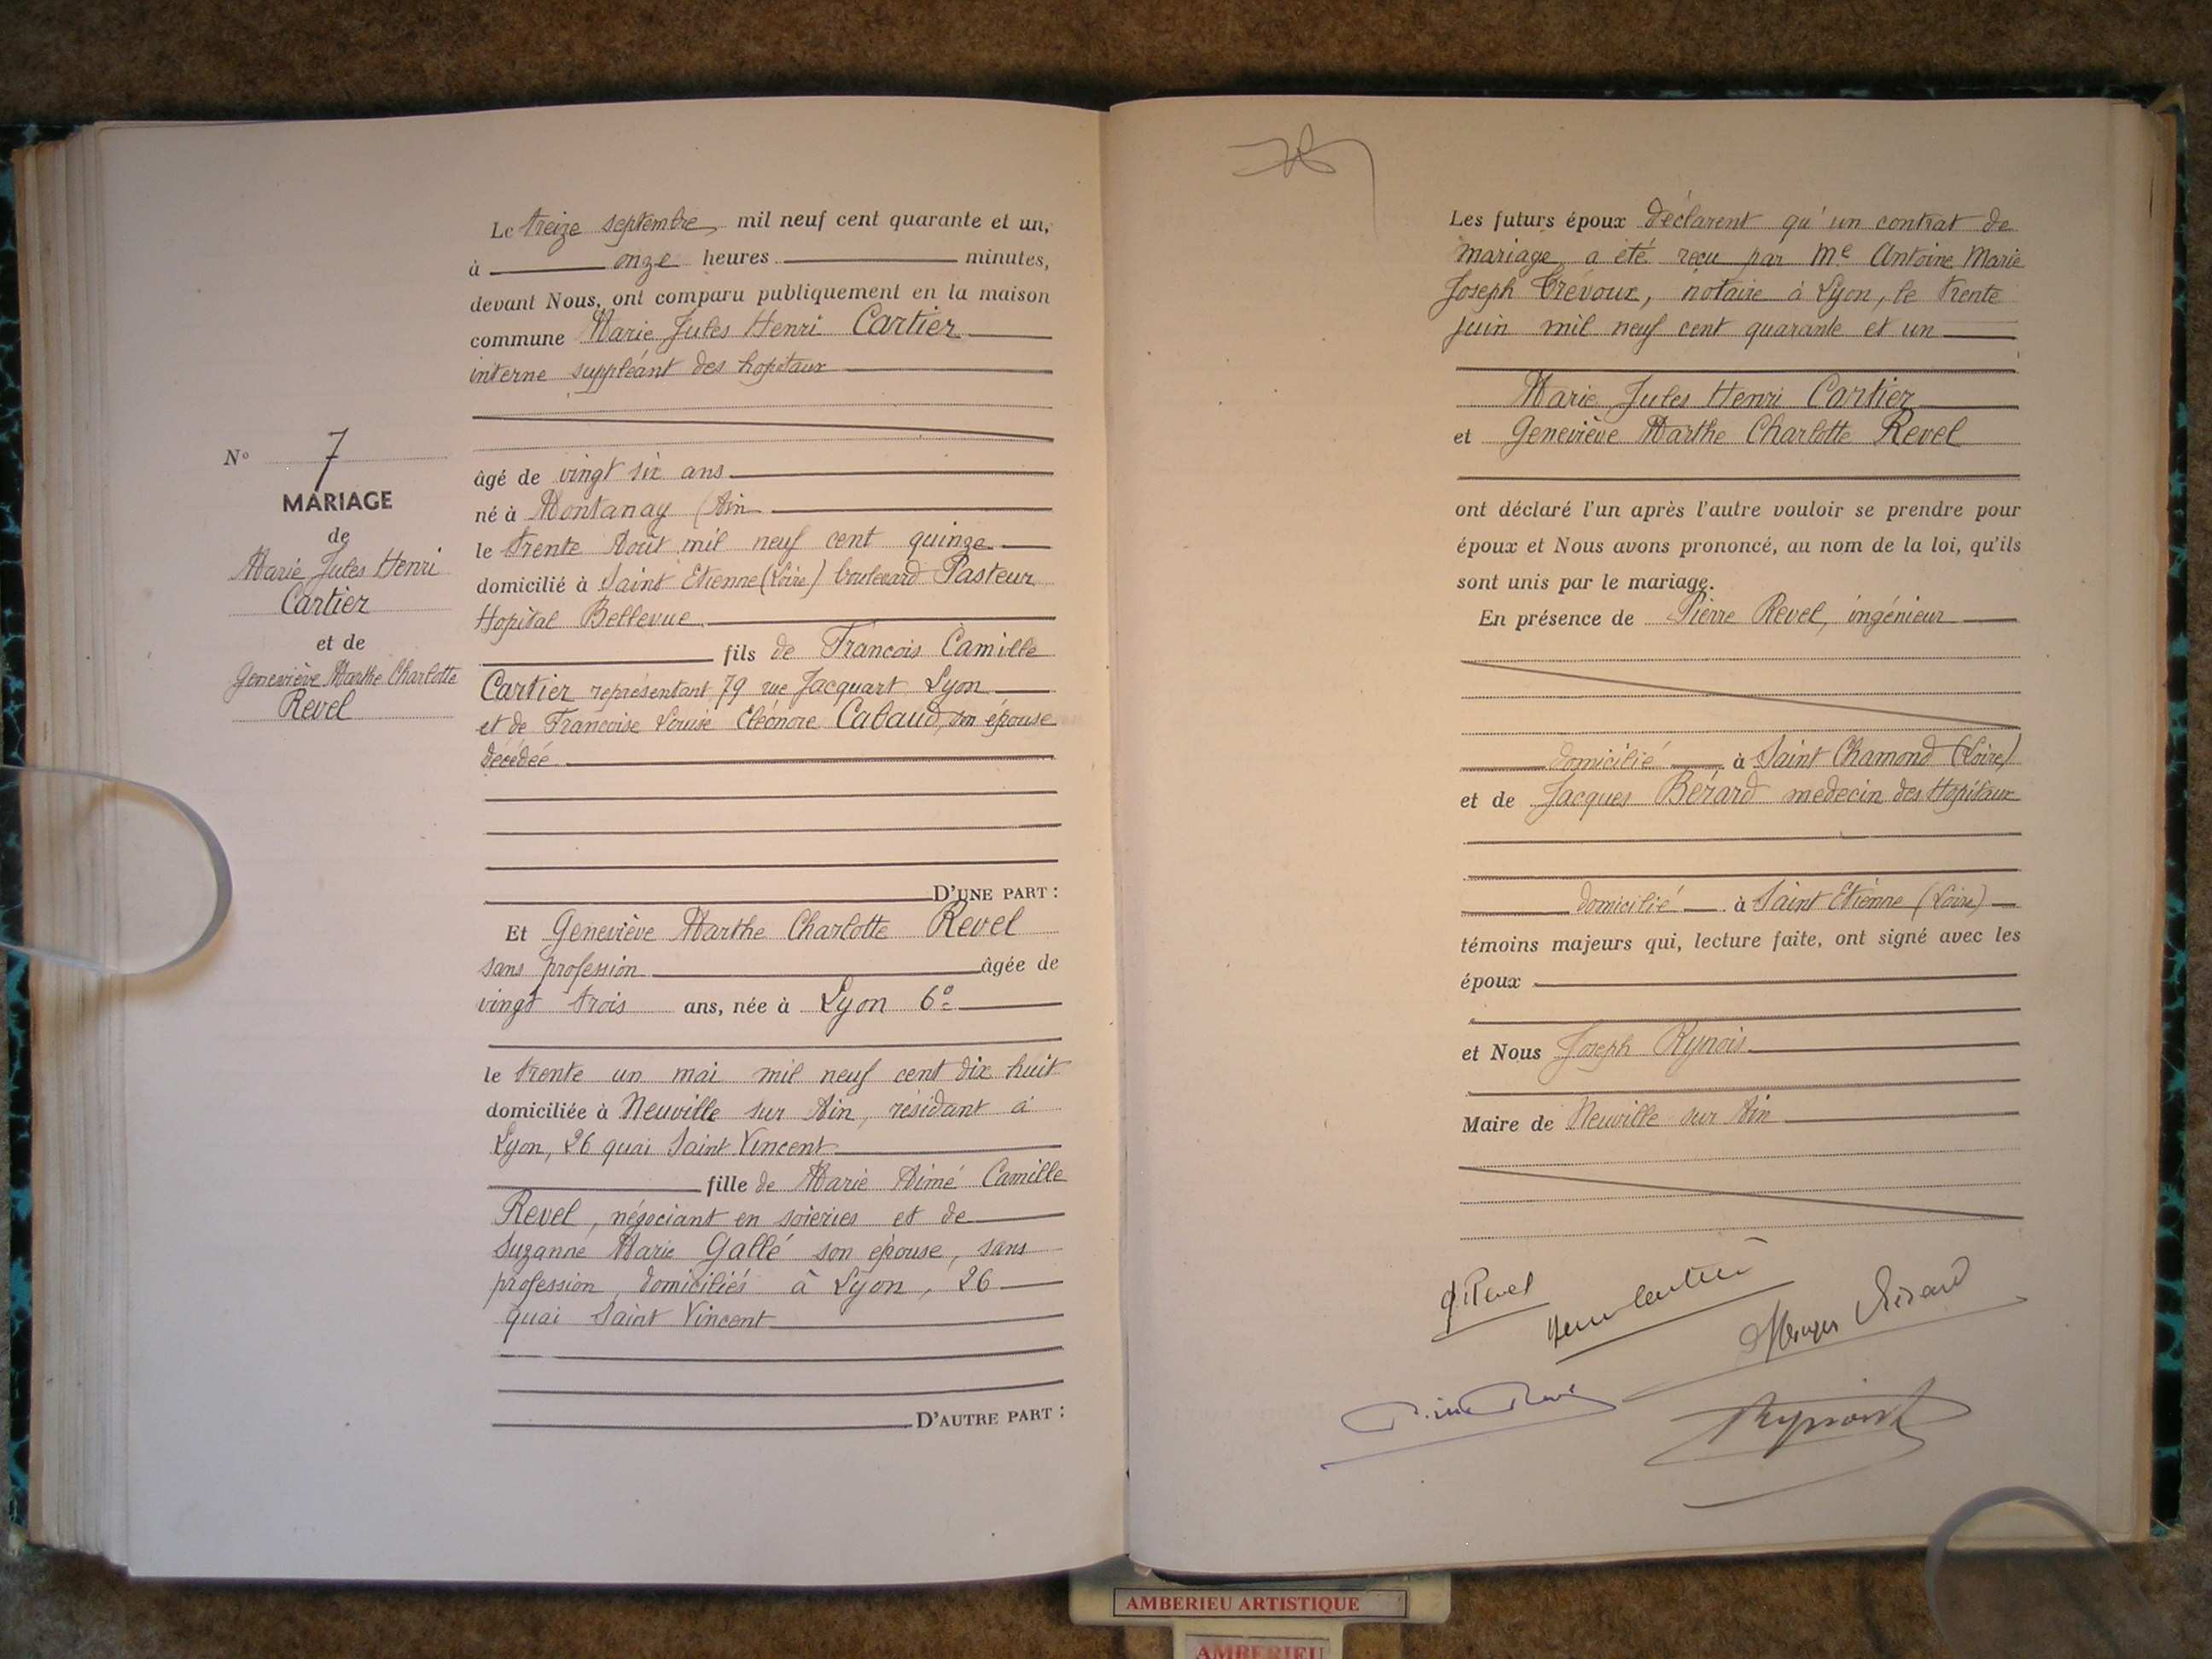 Le treize septembre mil neuf cent quarante et un,
à onze heures minutes,
devant Nous, ont comparu publiquement en la maison
commune Marie Jules Henri Cartier
interne suppléant des hopitaux
N° 7
MARIAGE
de
Marie Jules Henri
Cartier
et de
Geneviève Marthe Charlotte
Revel
âgé de vingt six ans
né à Montanay (Ain
le trente Août mil neuf cent quinze
domicilié à Saint Etienne (Loire) boulevard Pasteur
Hopital Bellevue
fils de François Camille
Cartier représentant 79 rue Jacquart Lyon
et de Françoise Louise Eléonore Cabaud, son épouse
décédée
D'UNE PART :
Et Geneviève Marthe Charlotte Revel
sans profession âgée de
vingt trois ans, née à Lyon 6e
le trente un mai mil neuf cent dix huit
domiciliée à Neuville sur Ain, résidant à
Lyon, 26 quai Saint Vincent
fille de Marie Aimé Camille
Revel, négociant en soieries et de
Suzanne Marie Gallé son épouse, sans
profession, domiciliés à Lyon, 26
quai Saint Vincent
D'AUTRE PART :
Les futurs époux déclarent qu'un contrat de
mariage a été reçu par Me Antoine Marie
Joseph Trévoux, notaire à Lyon, le trente
juin mil neuf cent quarante et un
Marie Jules Henri Cartier
et Geneviève Marthe Charlotte Revel
ont déclaré l'un après l'autre vouloir se prendre pour
époux et Nous avons prononcé, au nom de la loi, qu'ils
sont unis par le mariage.
En présence de Pierre Revel, ingénieur
domicilié à Saint Chamond (Loire)
et de Jacques Bérard medecin des Hopitaux
domicilié à Saint Etienne (Loire)
témoins majeurs qui, lecture faite, ont signé avec les
époux
et Nous Joseph Rynois
Maire de Neuville sur Ain
G. Revel
Henri Cartier
Bérard
Pierre Revel
AMBERIEU ARTISTIQUE
AMBERIEU